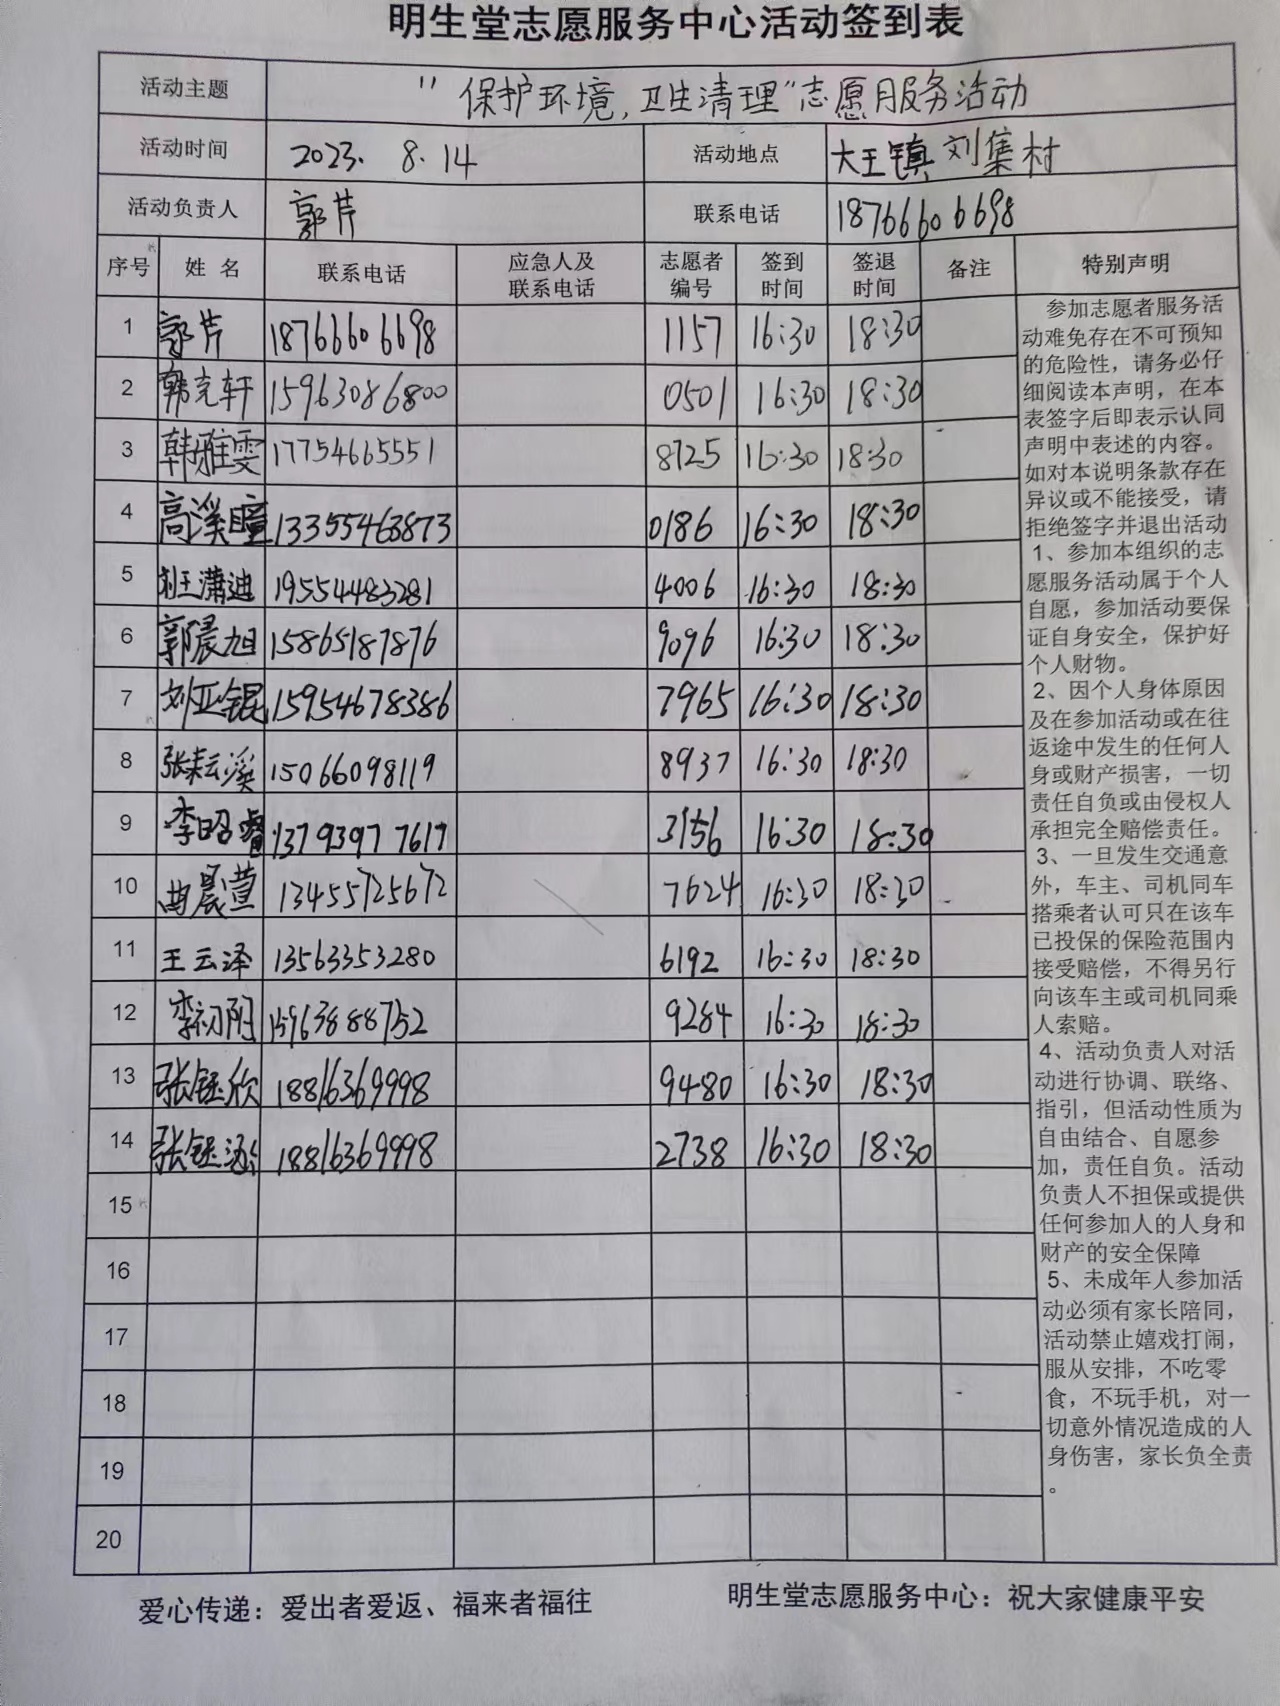 明生堂志愿服务中心活动签到表
活动主题 "保护环境,卫生清理"志愿服务活动
活动时间 2023.8.14 活动地点 大王镇刘集村
活动负责人 郭芹 联系电话 18766606698
序号 姓名 联系电话 应急人及联系电话 志愿者编号 签到时间 签退时间 备注 特别声明
1 郭芹 18766606698 1157 16:30 18:30
2 韩克轩 15963086800 0501 16:30 18:30
3 韩雅雯 17754665551 8725 16:30 18:30
4 高溪瞳 13355463873 0186 16:30 18:30
5 潇迪 19554483281 4006 16:30 18:30
6 郭晨旭 15865187876 9096 16:30 18:30
7 刘亚锟 15954678386 7965 16:30 18:30
8 张耘溪 15066098119 8937 16:30 18:30
9 李昭睿 13793977617 3156 16:30 18:30
10 曲晨萱 13455725672 7624 16:30 18:30
11 王云泽 13563353280 6192 16:30 18:30
12 李初阳 15963888752 9284 16:30 18:30
13 张钰欣 18816369998 9480 16:30 18:30
14 张钰涵 18816369998 2738 16:30 18:30
15
16
17
18
19
20
参加志愿者服务活
动难免存在不可预知
的危险性，请务必仔
细阅读本声明，在本
表签字后即表示认同
声明中表述的内容。
如对本说明条款存在
异议或不能接受，请
拒绝签字并退出活动
1、参加本组织的志
愿服务活动属于个人
自愿，参加活动要保
证自身安全，保护好
个人财物。
2、因个人身体原因
及在参加活动或在往
返途中发生的任何人
身或财产损害，一切
责任自负或由侵权人
承担完全赔偿责任。
3、一旦发生交通意
外，车主、司机同车
搭乘者认可只在该车
已投保的保险范围内
接受赔偿，不得另行
向该车主或司机同乘
人索赔。
4、活动负责人对活
动进行协调、联络、
指引，但活动性质为
自由结合、自愿参
加，责任自负。活动
负责人不担保或提供
任何参加人的人身和
财产的安全保障
5、未成年人参加活
动必须有家长陪同，
活动禁止嬉戏打闹，
服从安排，不吃零
食，不玩手机，对一
切意外情况造成的人
身伤害，家长负全责
。
爱心传递：爱出者爱返、福来者福往 明生堂志愿服务中心：祝大家健康平安